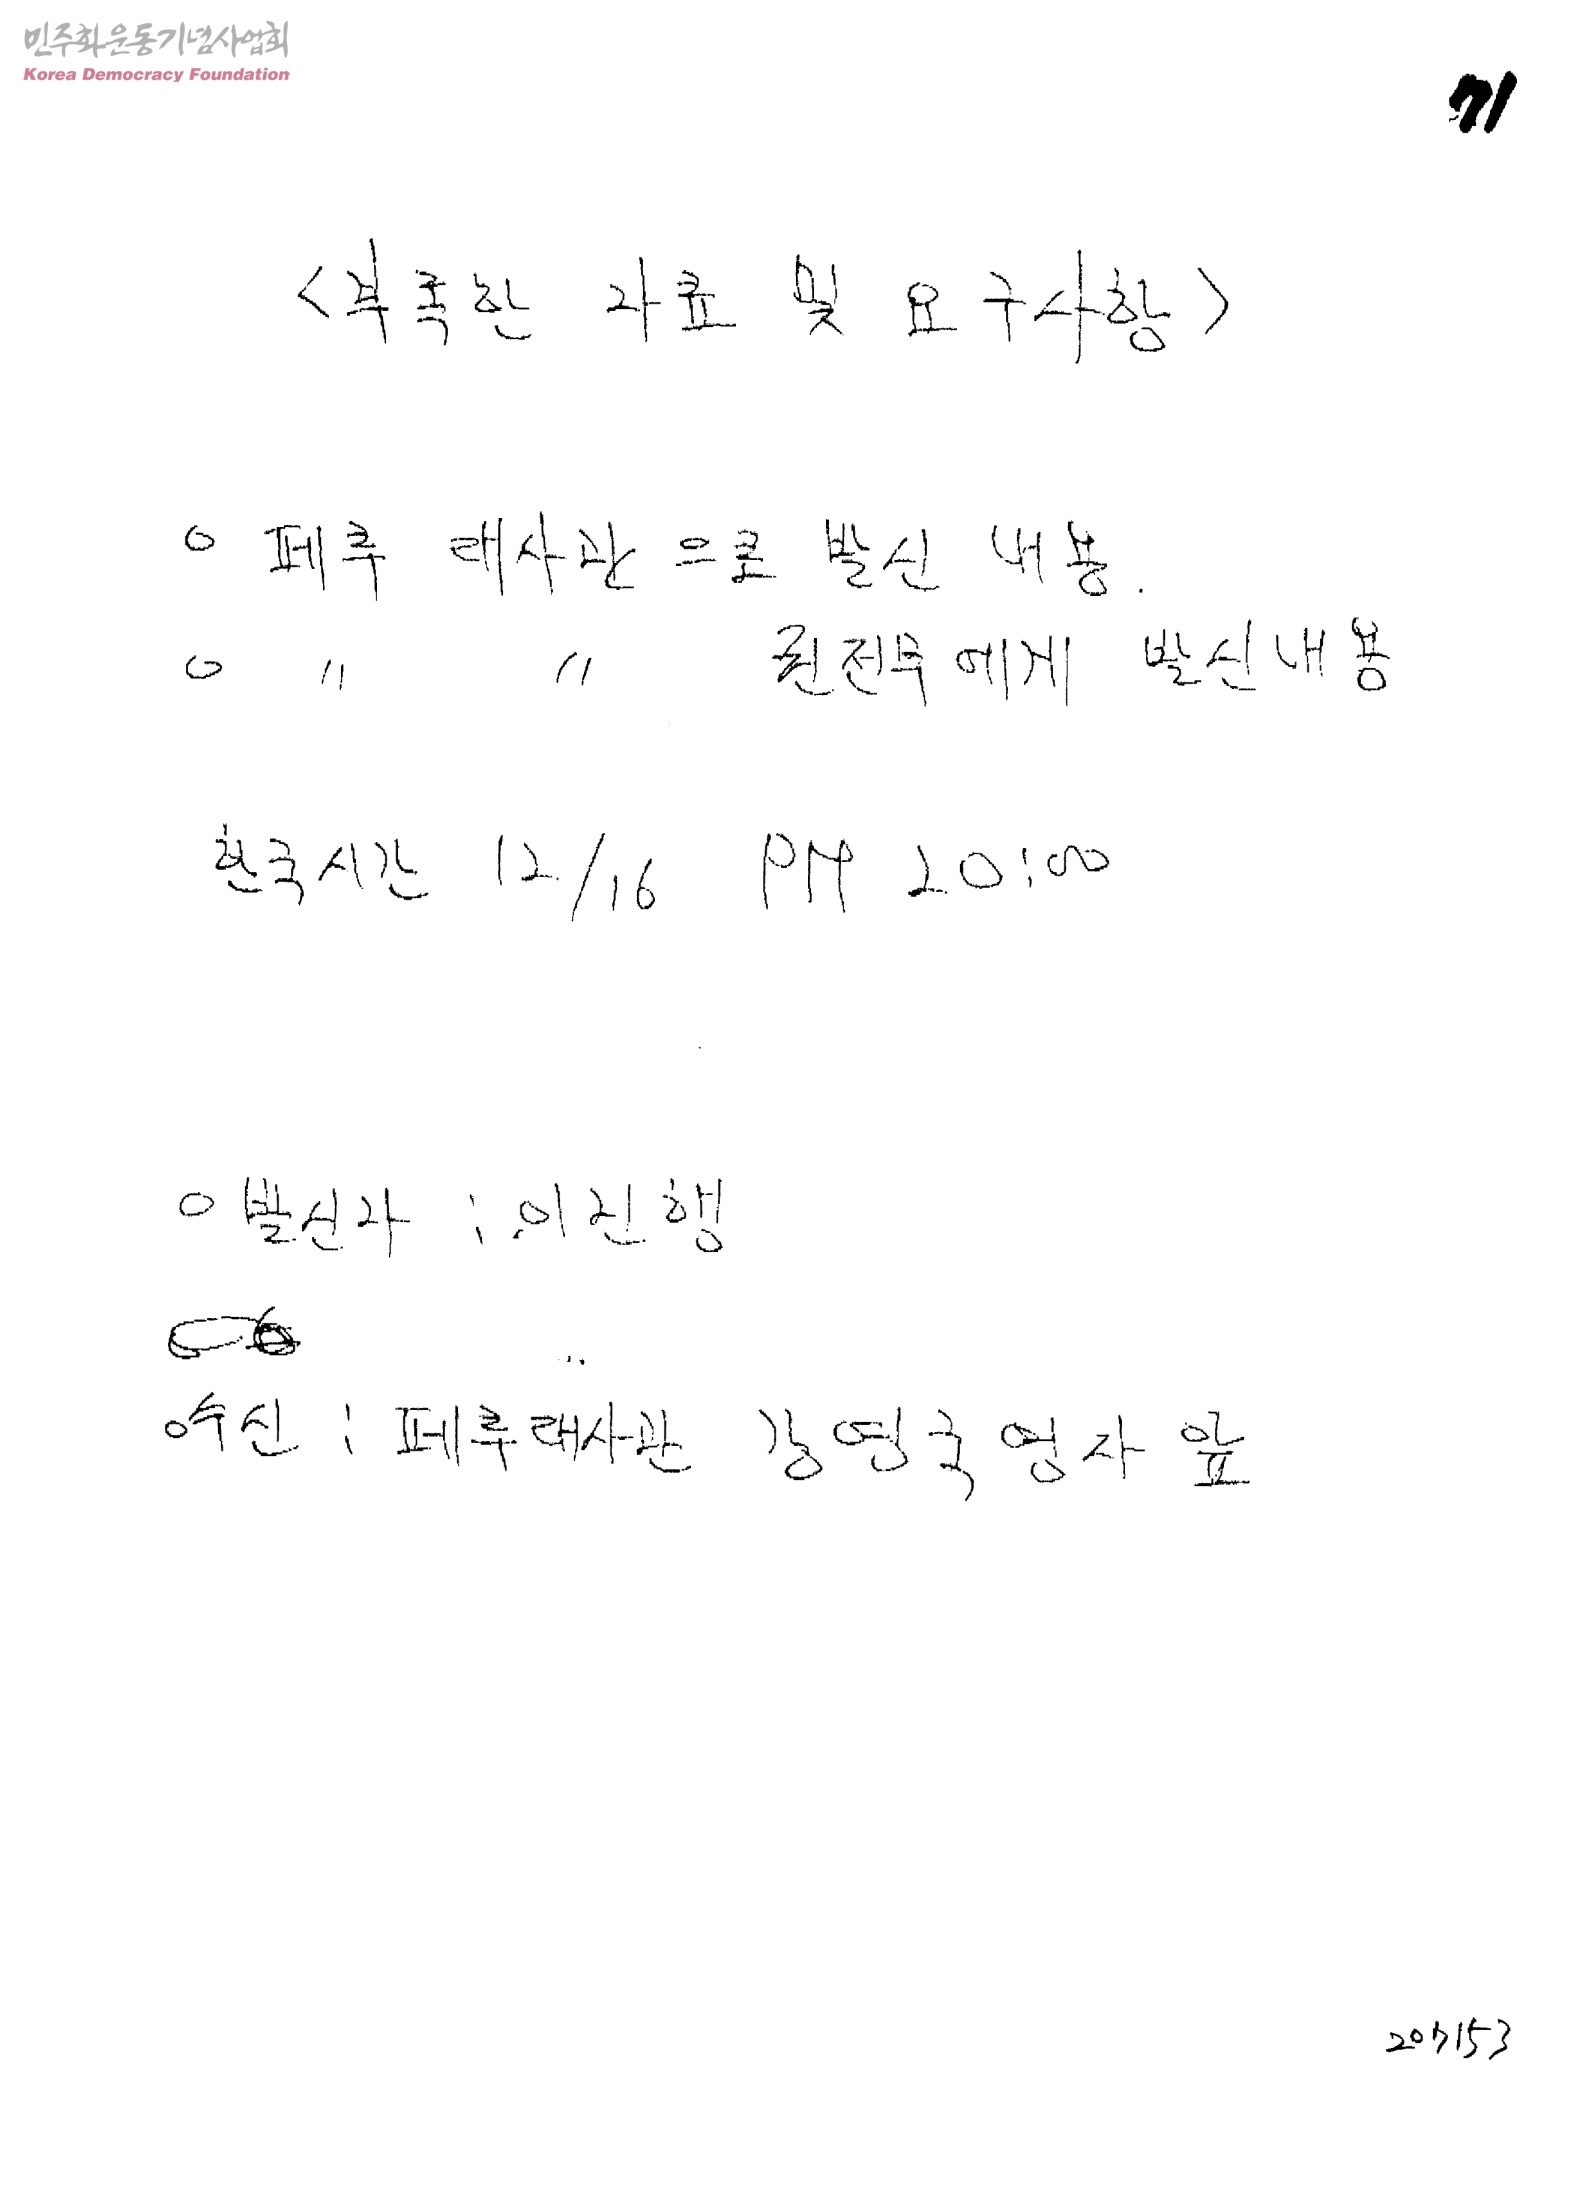 민주화운동기념사업회
Korea Democracy Foundation
71
<부족한 자료 및 요구사항>
○ 페루 대사관으로 발신 내용.
○ 〃 〃 권전무에게 발신내용
한국시간 12/16 PM 20:00
○ 발신자 : 이진행
○수신 : 페루대사관 강영국영사 앞
207153